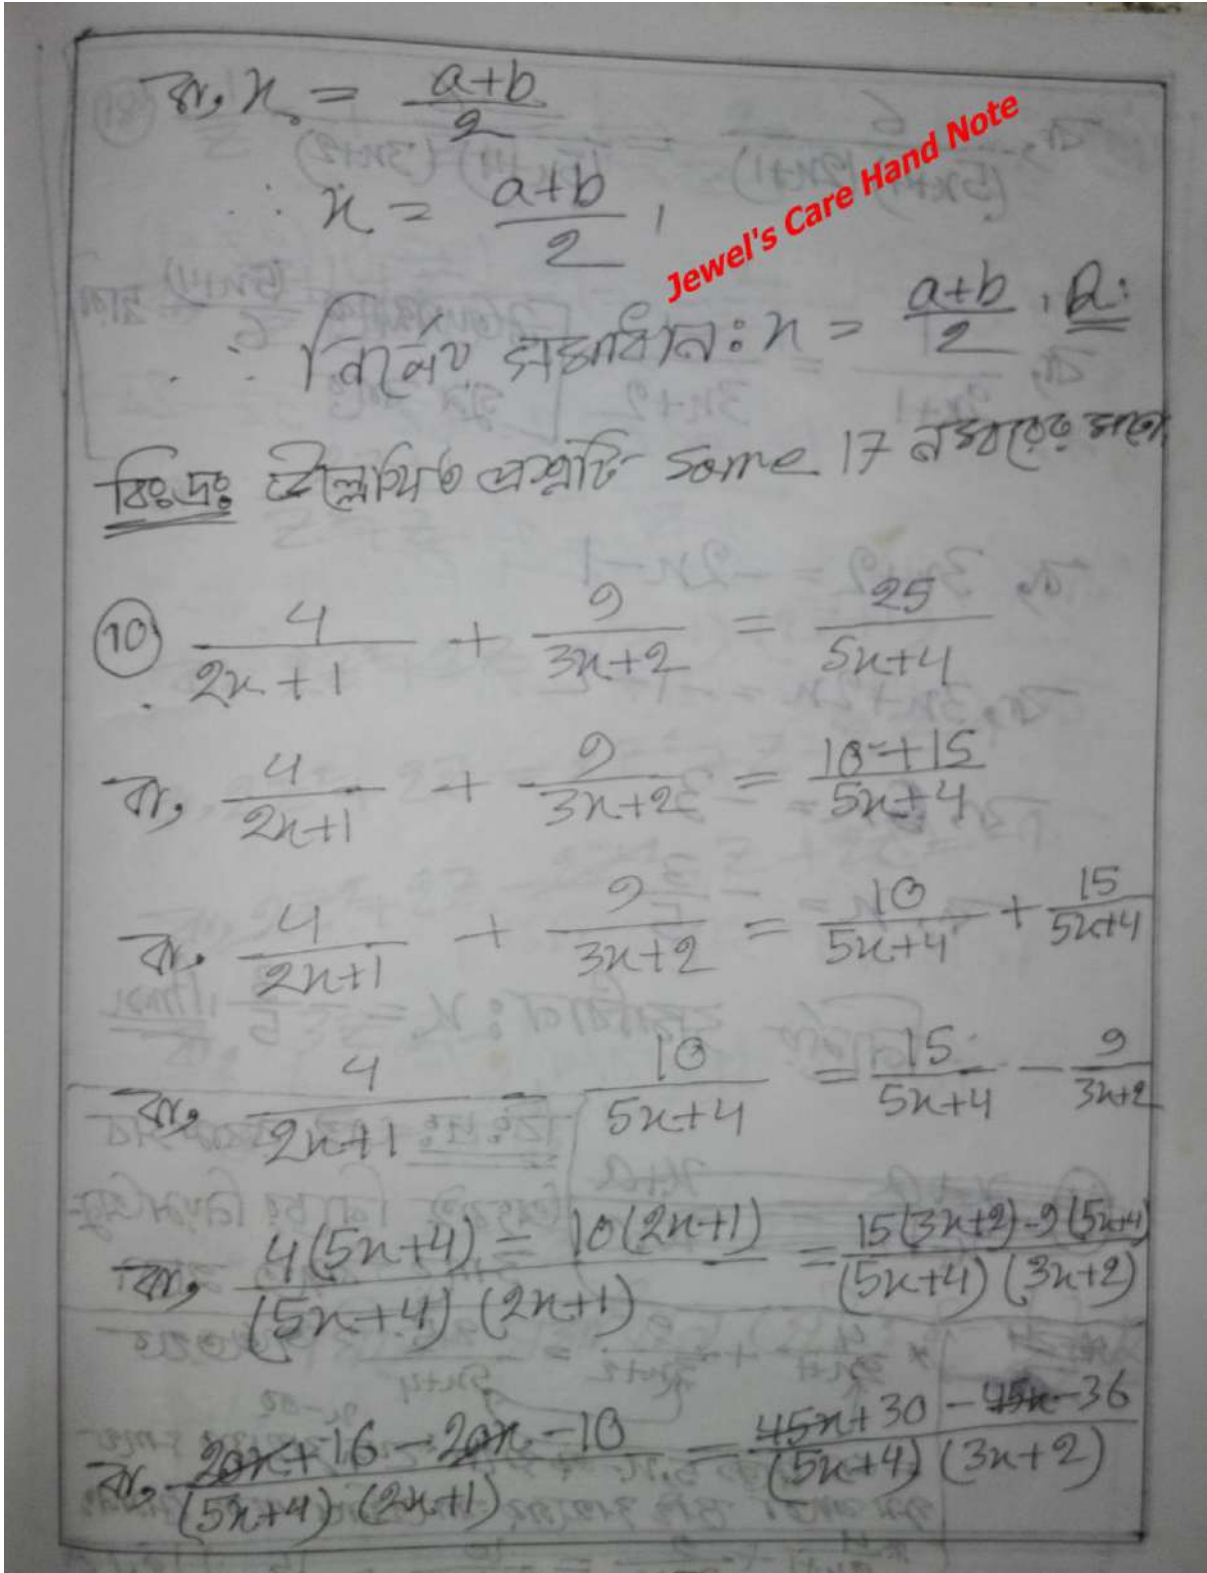 বা, x = a+b/2
∴ x = a+b/2 ,
Jewel's Care Hand Note
∴ নির্ণেয় সমাধান: x = a+b/2 .
বিঃদ্রঃ উল্লেখিত প্রশ্নটি same 17 নম্বরের মতো
(10) 4/2x+1 + 9/3x+2 = 25/5x+4
বা, 4/2x+1 + 9/3x+2 = 10+15/5x+4
বা, 4/2x+1 + 9/3x+2 = 10/5x+4 + 15/5x+4
বা, 4/2x+1 - 10/5x+4 = 15/5x+4 - 9/3x+2
বা, 4(5x+4) = 10(2x+1)/(5x+4)(2x+1) = 15(3x+2)-9(5x+4)/(5x+4)(3x+2)
বা, 20x+16-20x-10/(5x+4)(2x+1) = 45x+30-45x-36/(5x+4)(3x+2)